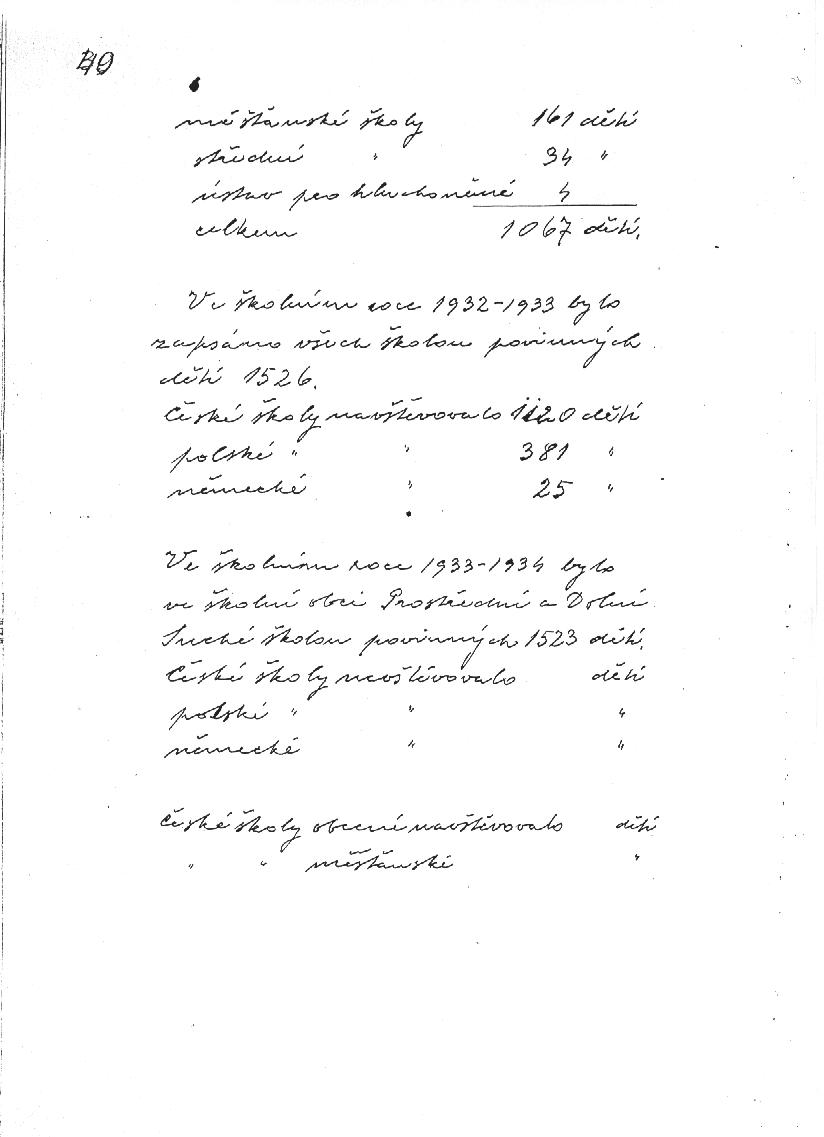 měšťanské školy 161 dětí
střední " 34 "
ústav pro hluchoněmé 4
celkem 1067 dětí.
Ve školním roce 1932-1933 bylo
zapsáno všech školou povinných
dětí 1526.
České školy navštěvovalo 1120 dětí
polské " " 381 "
německé " 25 "
Ve školním roce 1933-1934 bylo
ve školní obci Prostřední a Dolní
Suché školou povinných 1523 dětí.
České školy navštěvovalo dětí
polské " " "
německé " "
České školy obecné navštěvovalo dětí
" " měšťanské "